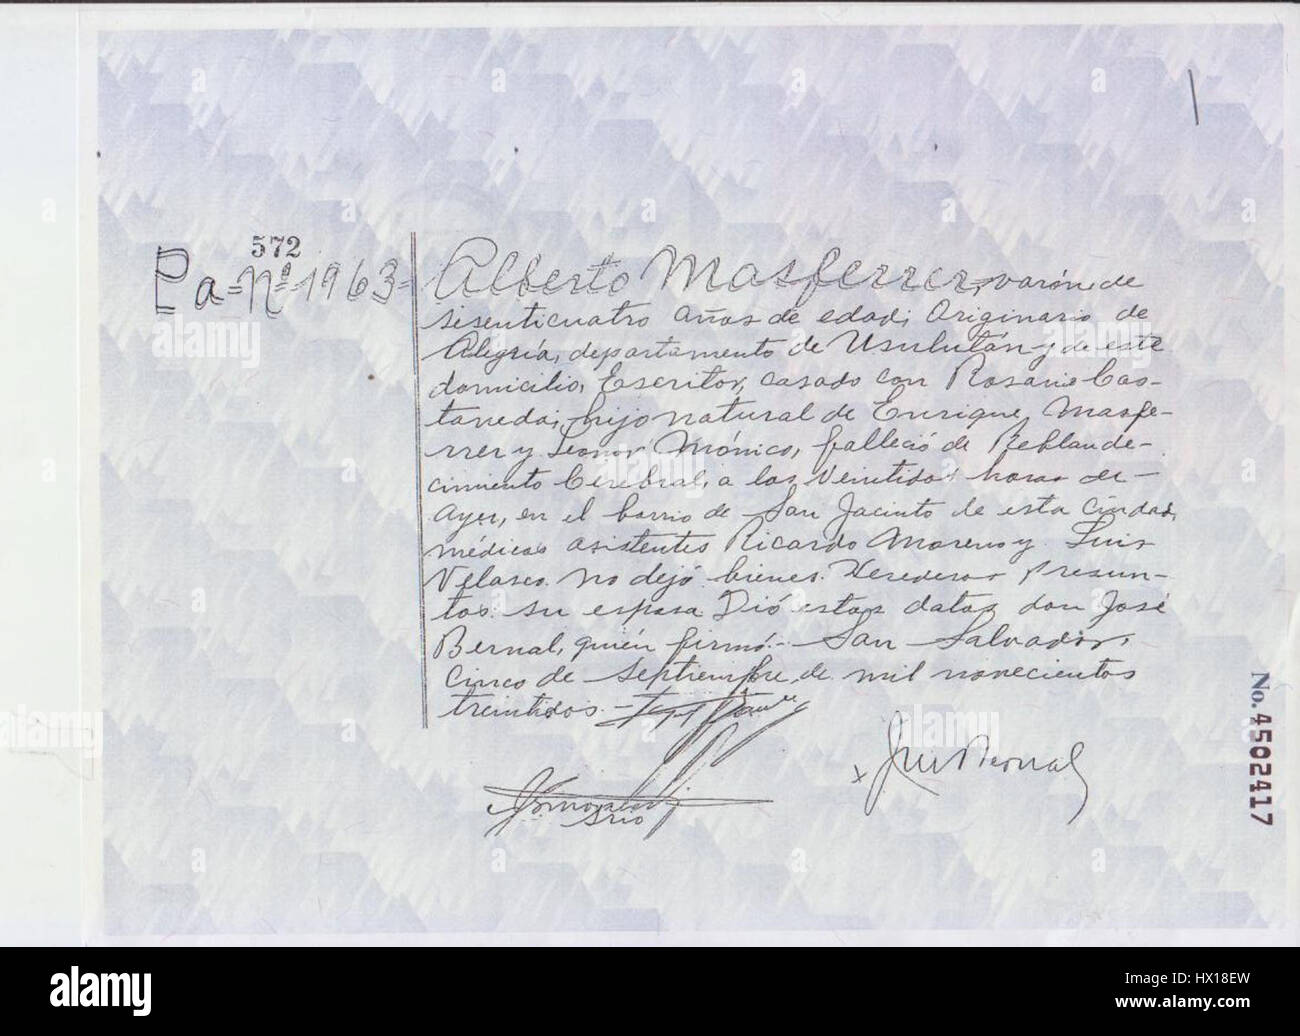 572
Pa=Nº=1963=
Alberto Masferrer, varón, de
sisenticuatro años de edad; Originario de
Alegría, departamento de Usulután y de este
domicilio, Escritor, casado con Rosario Cas-
taneda, hijo natural de Enrique Masfe-
rrer y Leonor Mónico, falleció de Reblande-
cimiento Cerebral, a las Veintidos horas de
Ayer, en el barrio de San Jacinto de esta ciudad,
médicos asistentes Ricardo Moreno y Luis
Velasco. No dejó bienes. Herederos Presun-
tos: su esposa. Dió estos datos don José
Bernal, quién firmó.- San Salvador,
cinco de Septiembre, de mil novecientos
treintidos.-
Bernal
Srio
No. 4502417
alamy stock photo
HX18EW
www.alamy.com